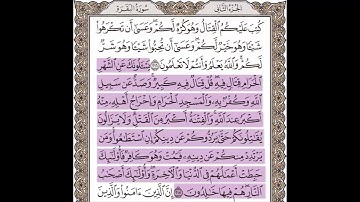 الجزء الثاني سورة البقرة
كُتِبَ عَلَيْكُمُ الْقِتَالُ وَهُوَ كُرْهٌ لَّكُمْ وَعَسَىٰ أَن تَكْرَهُوا
شَيْئًا وَهُوَ خَيْرٌ لَّكُمْ وَعَسَىٰ أَن تُحِبُّوا شَيْئًا وَهُوَ شَرٌّ
لَّكُمْ وَاللَّهُ يَعْلَمُ وَأَنتُمْ لَا تَعْلَمُونَ ٢١٦ يَسْأَلُونَكَ عَنِ الشَّهْرِ
الْحَرَامِ قِتَالٍ فِيهِ قُلْ قِتَالٌ فِيهِ كَبِيرٌ وَصَدٌّ عَن سَبِيلِ
اللَّهِ وَكُفْرٌ بِهِ وَالْمَسْجِدِ الْحَرَامِ وَإِخْرَاجُ أَهْلِهِ مِنْهُ
أَكْبَرُ عِندَ اللَّهِ وَالْفِتْنَةُ أَكْبَرُ مِنَ الْقَتْلِ وَلَا يَزَالُونَ
يُقَاتِلُونَكُمْ حَتَّىٰ يَرُدُّوكُمْ عَن دِينِكُمْ إِنِ اسْتَطَاعُوا وَمَن
يَرْتَدِدْ مِنكُمْ عَن دِينِهِ فَيَمُتْ وَهُوَ كَافِرٌ فَأُولَٰئِكَ
حَبِطَتْ أَعْمَالُهُمْ فِي الدُّنْيَا وَالْآخِرَةِ وَأُولَٰئِكَ أَصْحَابُ
النَّارِ هُمْ فِيهَا خَالِدُونَ ٢١٧ إِنَّ الَّذِينَ آمَنُوا وَالَّذِينَ